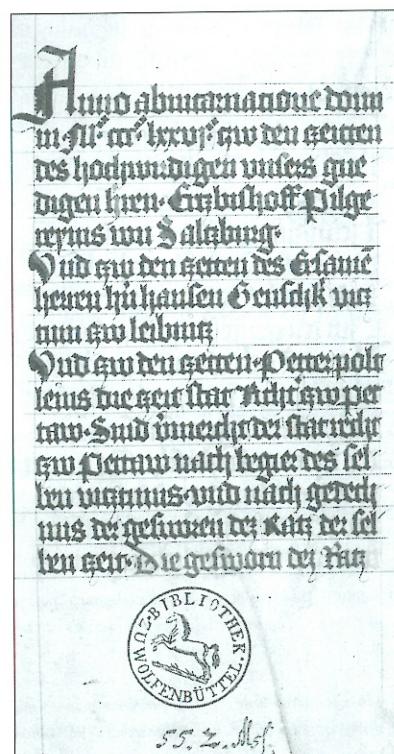 Anno ab incarnacione domi
ni Mᵒ cccᵒ lxxvjᵒ zw den zeitten
des hochwirdigen unsers gne
digen hern. Ertzbischoff Pilge
reyms von Salczburg.
Und zw den zeitten des Ersamē
herren hern hansen Gensdik vitz
tum zw leibnitz
Und zw den zeitten. Petter polt
leins die zeit stat Richter zw pet
taw. Sind vernewt der stat recht
zw Pettaw nach begier des sel
ben vitztumbs. und nach gedech
nus der gesworen dez Ratz der sel
ben zeit. Die gesworn dez Ratz
BIBLIOTHEK
WOLFENBÜTTEL
55. 2. Msc.